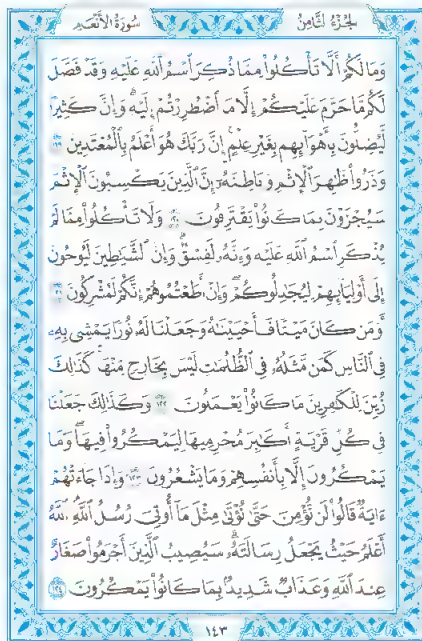 سُورَةُ الأَنْعَامِ
الجُزْءُ الثَّامِنُ
وَمَا لَكُمْ أَلَّا تَأْكُلُوا۟ مِمَّا ذُكِرَ ٱسْمُ ٱللَّهِ عَلَيْهِ وَقَدْ فَصَّلَ
لَكُم مَّا حَرَّمَ عَلَيْكُمْ إِلَّا مَا ٱضْطُرِرْتُمْ إِلَيْهِ ۗ وَإِنَّ كَثِيرًا
لَّيُضِلُّونَ بِأَهْوَآئِهِم بِغَيْرِ عِلْمٍ ۗ إِنَّ رَبَّكَ هُوَ أَعْلَمُ بِٱلْمُعْتَدِينَ ١١٩
وَذَرُوا۟ ظَٰهِرَ ٱلْإِثْمِ وَبَاطِنَهُۥٓ ۚ إِنَّ ٱلَّذِينَ يَكْسِبُونَ ٱلْإِثْمَ
سَيُجْزَوْنَ بِمَا كَانُوا۟ يَقْتَرِفُونَ ١٢٠ وَلَا تَأْكُلُوا۟ مِمَّا لَمْ
يُذْكَرِ ٱسْمُ ٱللَّهِ عَلَيْهِ وَإِنَّهُۥ لَفِسْقٌ ۗ وَإِنَّ ٱلشَّيَٰطِينَ لَيُوحُونَ
إِلَىٰٓ أَوْلِيَآئِهِمْ لِيُجَٰدِلُوكُمْ ۖ وَإِنْ أَطَعْتُمُوهُمْ إِنَّكُمْ لَمُشْرِكُونَ ١٢١
أَوَمَن كَانَ مَيْتًا فَأَحْيَيْنَٰهُ وَجَعَلْنَا لَهُۥ نُورًا يَمْشِى بِهِۦ
فِى ٱلنَّاسِ كَمَن مَّثَلُهُۥ فِى ٱلظُّلُمَٰتِ لَيْسَ بِخَارِجٍ مِّنْهَا ۚ كَذَٰلِكَ
زُيِّنَ لِلْكَٰفِرِينَ مَا كَانُوا۟ يَعْمَلُونَ ١٢٢ وَكَذَٰلِكَ جَعَلْنَا
فِى كُلِّ قَرْيَةٍ أَكَٰبِرَ مُجْرِمِيهَا لِيَمْكُرُوا۟ فِيهَا ۖ وَمَا
يَمْكُرُونَ إِلَّا بِأَنفُسِهِمْ وَمَا يَشْعُرُونَ ١٢٣ وَإِذَا جَآءَتْهُمْ
ءَايَةٌ قَالُوا۟ لَن نُّؤْمِنَ حَتَّىٰ نُؤْتَىٰ مِثْلَ مَآ أُوتِىَ رُسُلُ ٱللَّهِ ۘ ٱللَّهُ
أَعْلَمُ حَيْثُ يَجْعَلُ رِسَالَتَهُۥ ۗ سَيُصِيبُ ٱلَّذِينَ أَجْرَمُوا۟ صَغَارٌ
عِندَ ٱللَّهِ وَعَذَابٌ شَدِيدٌۢ بِمَا كَانُوا۟ يَمْكُرُونَ ١٢٤
١٤٣